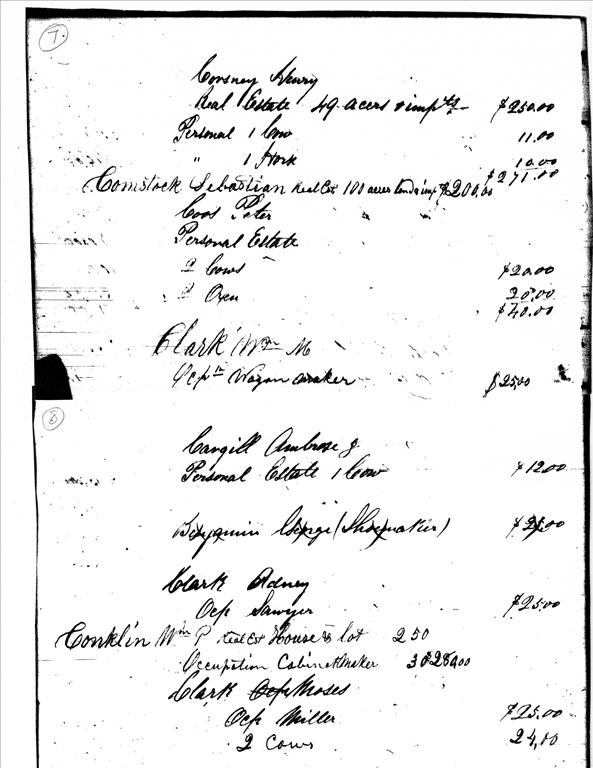 7.
Corsney Henry
Real Estate 49 acers & impts $250.00
Personal 1 Cow 11.00
" 1 10.00
$271.00
Comstock Sebastian Real Est 100 acres land & imp $200,00
Coos Peter
Personal Estate
2 Cows $20.00
2 Oxen 20.00
$40.00
Clark Wm M
Ocpn Wagon maker $25,00
8
Cargill Ambrose J
Personal Estate 1 Cow $12.00
Benjamin (Shoemaker) $25.00
Clark Adney
Ocp Sawyer $25.00
Conklin Wm P Real Est House & lot 250
Occupation Cabinet Maker 30 $280,00
Clark Ocp Moses
Ocp Miller $25.00
2 Cows 24,00